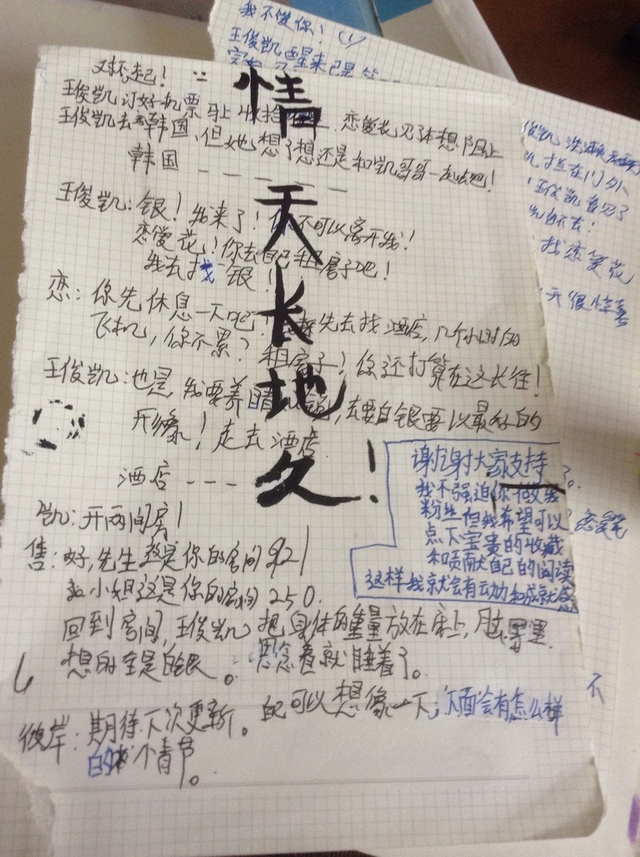 我不
王俊凯 醒来已是
对不起！
王俊凯订好机票马上收拾 恋爱花 想阻止
王俊凯去韩国，但她想了想还是和凯哥哥一起去吧！
韩国 - - - - - -
王俊凯：银！我来了！你不可以离开我！
恋爱花！你去自己租房子吧！
我去找银！
恋：你先休息一天吧！ 先去找酒店，几个小时的
飞机，你不累？租房子？你还打算在这长住！
王俊凯：也是，我要养 睛 ，去要白银要以最好的
形象！走去酒店
酒店 - - - -
凯：开两间房！
售：好，先生这是你的房间921
小姐这是你的房间250.
回到房间，王俊凯 把身体的重量放在床上，脑 里
想的全是白银。 着就睡着了。
彼岸：期待下次更新。 可以想像一下，下面会有怎么样
的 个情节。
情
天
长
地
久！
谢谢大家支持。
我不强迫你做我
粉丝但我希望可以
点下宝贵的收藏
和贡献自己的阅读
这样我就会有动力和成就感
俊凯
拦在门外
王俊凯看见了
找恋爱花
开很惊喜
恋爱
不